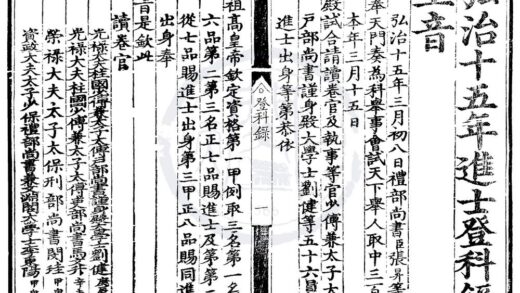 弘治十五年進士登科錄
玉音
弘治十五年三月初八日禮部尚書臣張昇等
奉天門奏為科舉事會試天下舉人取中三百
本年三月十五日
殿試合請讀卷官及執事等官少傅兼太子太
户部尚書謹身殿大學士劉健等五十六員
進士出身等第恭依
登科錄
一
祖高皇帝欽定資格第一甲例取三名第一名
六品第二第三名正七品賜進士及第第二
從七品賜進士出身第三甲正八品賜同進
出身奉
旨是欽此
讀卷官
光祿大夫柱國少傅兼太子太傅户部尚書謹身殿大學士劉健
光祿大夫柱國少傅兼太子太傅吏部尚書馬文升
榮祿大夫太子太保刑部尚書閔珪
資政大夫太子少保禮部尚書兼文淵閣大學士李東陽